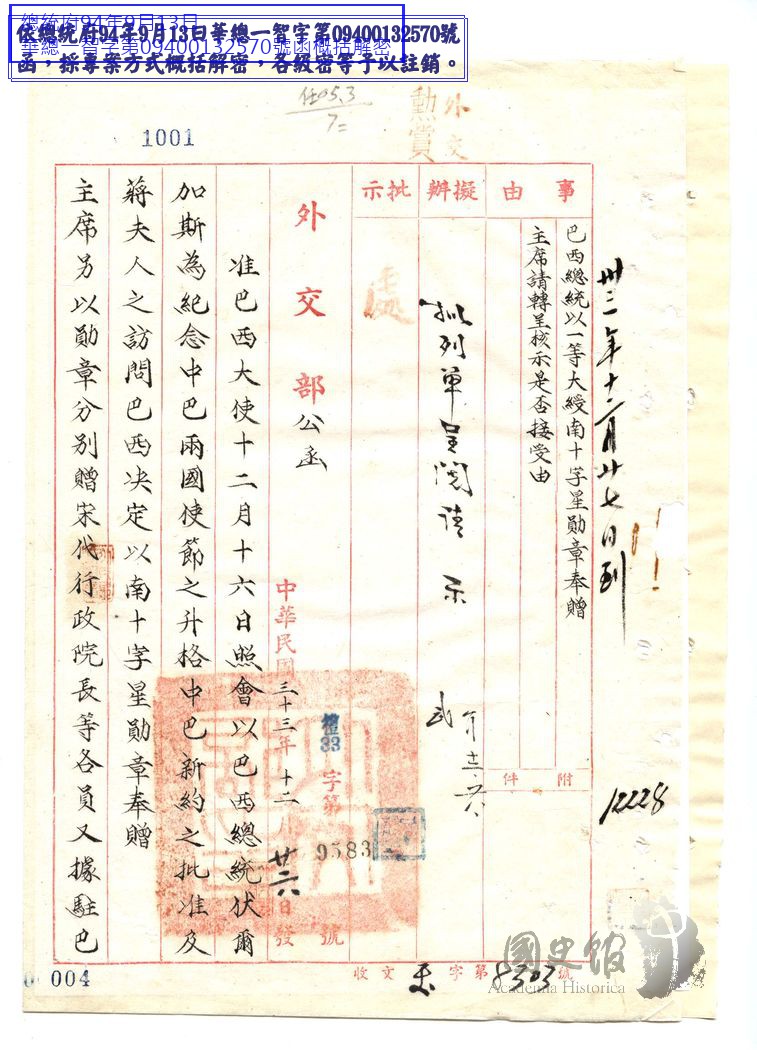 總統府94年9月13日
華總一智字第09400132570號函概括解密
依總統府94年9月13日華總一智字第09400132570號
函，採專案方式概括解密，各級密等予以註銷。
1001
外交
勳賞
卅三年十二月廿七日到
12228
事由
巴西總統以一等大綬南十字星勛章奉贈
主席請轉呈核示是否接受由
附件
擬辦
擬列單呈閱請示
批示
外交部公函
中華民國三十三年十二月廿六日發
禮33字第9583號
准巴西大使十二月十六日照會以巴西總統伏爾
加斯為紀念中巴兩國使節之升格中巴新約之批准及
蔣夫人之訪問巴西決定以南十字星勛章奉贈
主席另以勛章分別贈宋代行政院長等各員又據駐巴
收文 字第8303號
004
國史館
Academia Historica